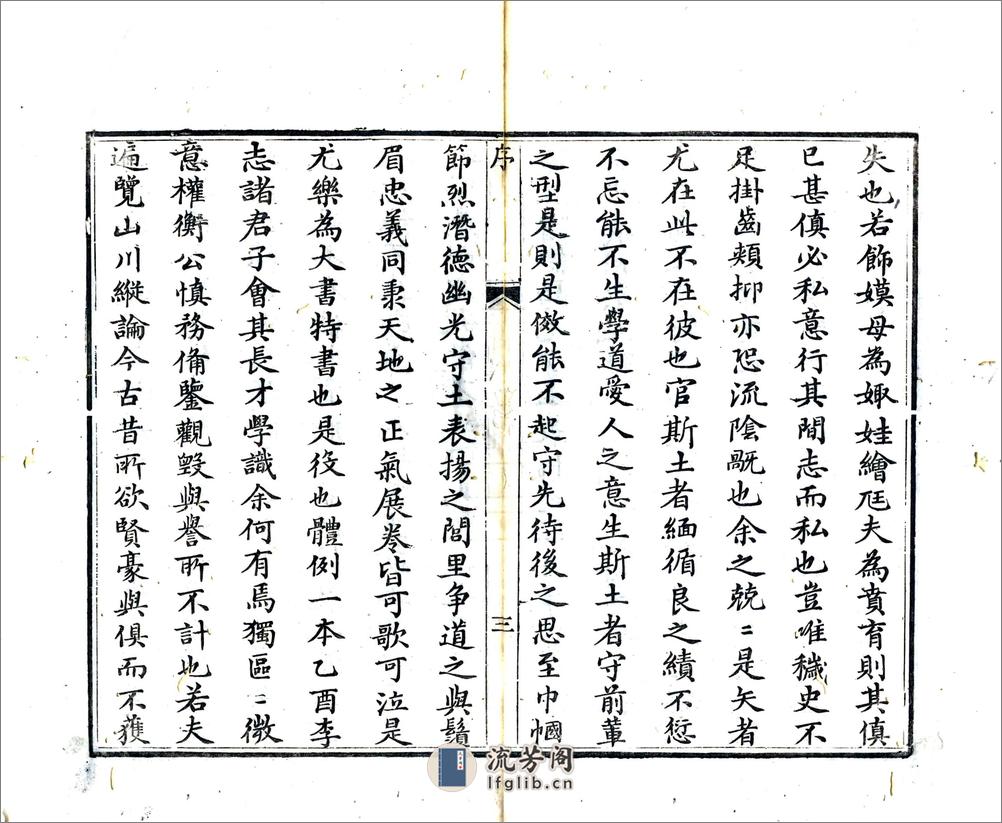 失也若飾嫫母為娵娃繪尫夫為賁育則其傎
已甚傎必私意行其間志而私也豈唯穢史不
足掛齒頰抑亦恐流陰翫也余之兢〻是矢者
尤在此不在彼也官斯土者緬循良之績不愆
不忘能不生學道愛人之意生斯土者守前輩
之型是則是傚能不起守先待後之思至巾幗
序
三
節烈潛德幽光守土表揚之閭里争道之與鬚
眉忠義同秉天地之正氣展卷皆可歌可泣是
尤樂為大書特書也是役也體例一本乙酉李
志諸君子會其長才學識余何有焉獨區〻微
意權衡公慎務俻鑒觀毀與譽所不計也若夫
遍覽山川縱論今古昔所欲賢豪與俱而不獲
流芳阁
lfglib.cn